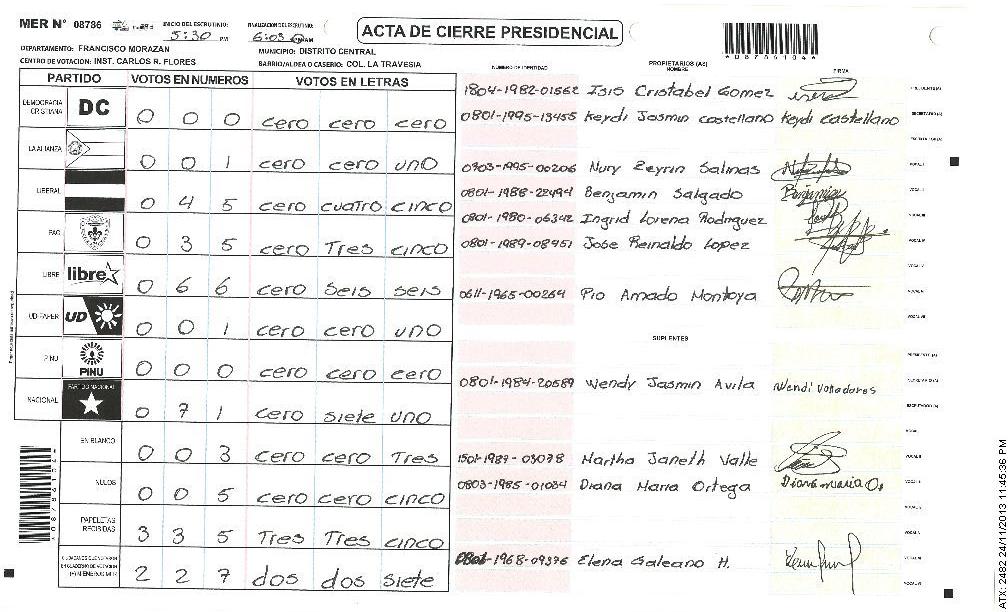 MER N° 08786 INICIO DEL ESCRUTINIO: 5:30 PM FINALIZACION DEL ESCRUTINIO: 6:03 AM
ACTA DE CIERRE PRESIDENCIAL
*08786104*
DEPARTAMENTO: FRANCISCO MORAZAN MUNICIPIO: DISTRITO CENTRAL
CENTRO DE VOTACION: INST. CARLOS R. FLORES BARRIO/ALDEA O CASERIO: COL. LA TRAVESIA
NUMERO DE IDENTIDAD PROPIETARIOS (AS) NOMBRE FIRMA
PARTIDO VOTOS EN NUMEROS VOTOS EN LETRAS
DEMOCRACIA CRISTIANA DC 0 0 0 cero cero cero
LA ALIANZA 0 0 1 cero cero uno
LIBERAL 0 4 5 cero cuatro cinco
PAC 0 3 5 cero Tres cinco
LIBRE libre 0 6 6 cero seis seis
UD FAPER UD 0 0 1 cero cero uno
PINU PINU 0 0 0 cero cero cero
NACIONAL PARTIDO NACIONAL 0 7 1 cero siete uno
EN BLANCO 0 0 3 cero cero Tres
NULOS 0 0 5 cero cero cinco
PAPELETAS RECIBIDAS 3 3 5 Tres Tres cinco
CIUDADANOS QUE VOTARON EN CUADERNO DE VOTACION (+) MIEMBROS MER 2 2 7 dos dos siete
1804-1982-01562 Isis Cristabel Gomez PRESIDENTE (A)
0801-1995-13455 Keydi Jasmin castellano Keydi castellano SECRETARIO (A)
ESCRUTADOR (A)
0803-1995-00206 Nury Zeyrin Salinas VOCAL I
0801-1988-22494 Benjamin Salgado VOCAL II
0801-1980-06342 Ingrid Lorena Rodriguez VOCAL III
0801-1989-08951 Jose Reinaldo Lopez VOCAL IV
VOCAL V
0611-1965-00264 Pio Amado Montoya VOCAL VI
VOCAL VII
SUPLENTES
PRESIDENTE (A)
0801-1984-20589 Wendy Jasmin Avila SECRETARIO (A)
ESCRUTADOR (A)
VOCAL I
1501-1987-03078 Martha Janeth Valle VOCAL II
0803-1985-01034 Diana Maria Ortega Diana maria O. VOCAL III
VOCAL IV
VOCAL V
1968-09376 Elena Galeano H. VOCAL VI
VOCAL VII
ATX: 2482 24/11/2013 11:45:36 PM